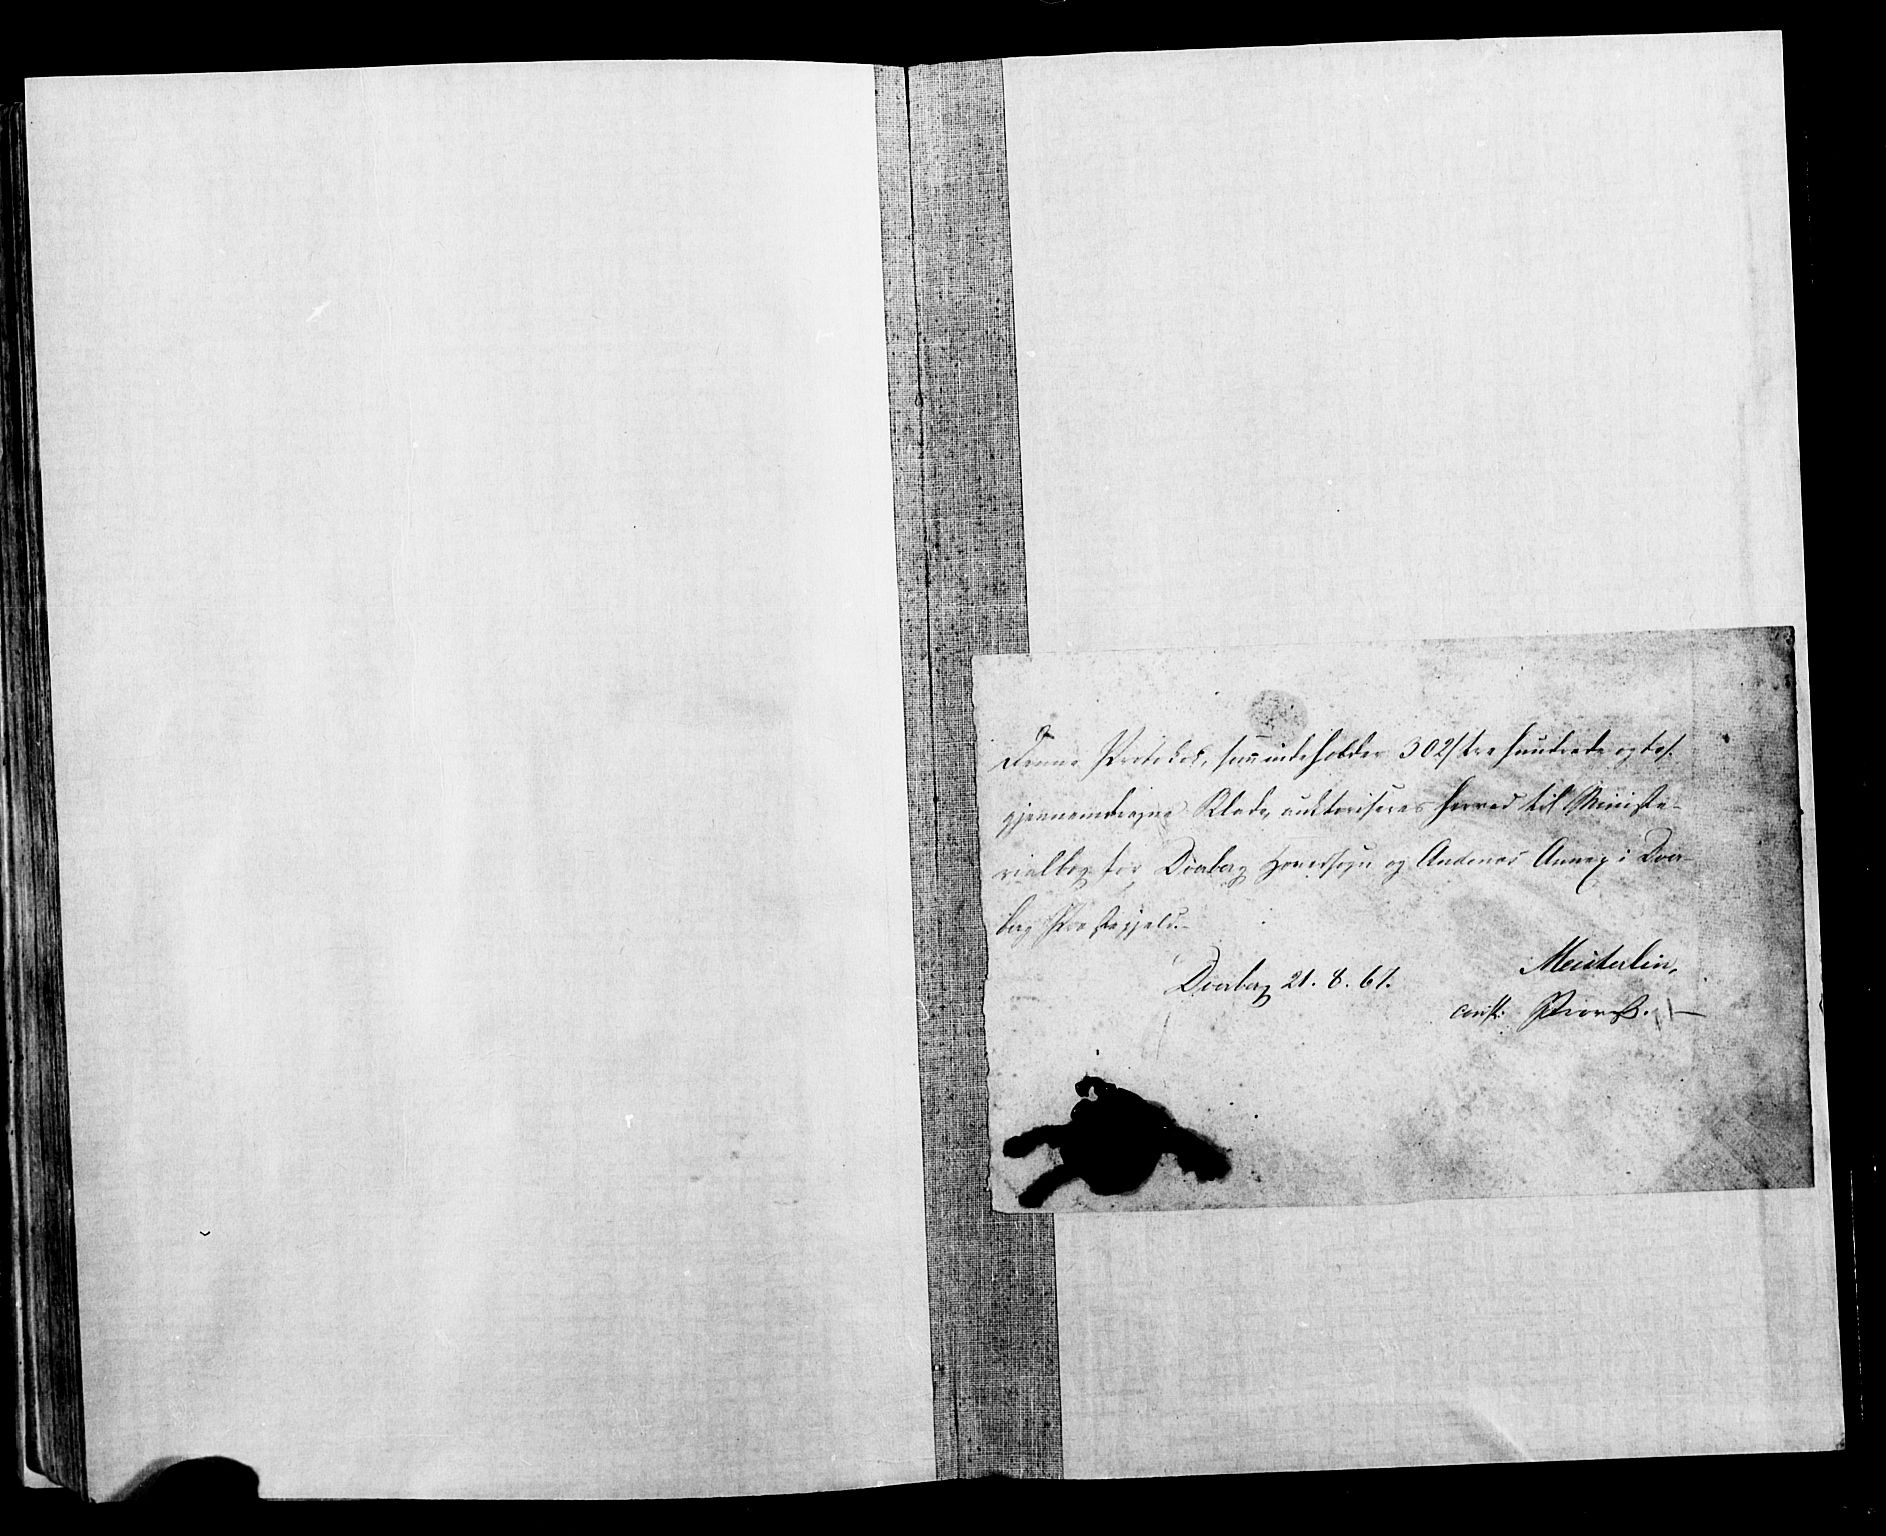 Denne Protokol, som indeholder 302/tre hundrede og to/
gjennemdragne Blade, auktoriseres herved til Ministe-
rialbog for Dverberg Hovedsogn og Andenes Annex i Dver-
berg Præstegjeld.-
Dverberg 21. 8. 61.
const: Provst.